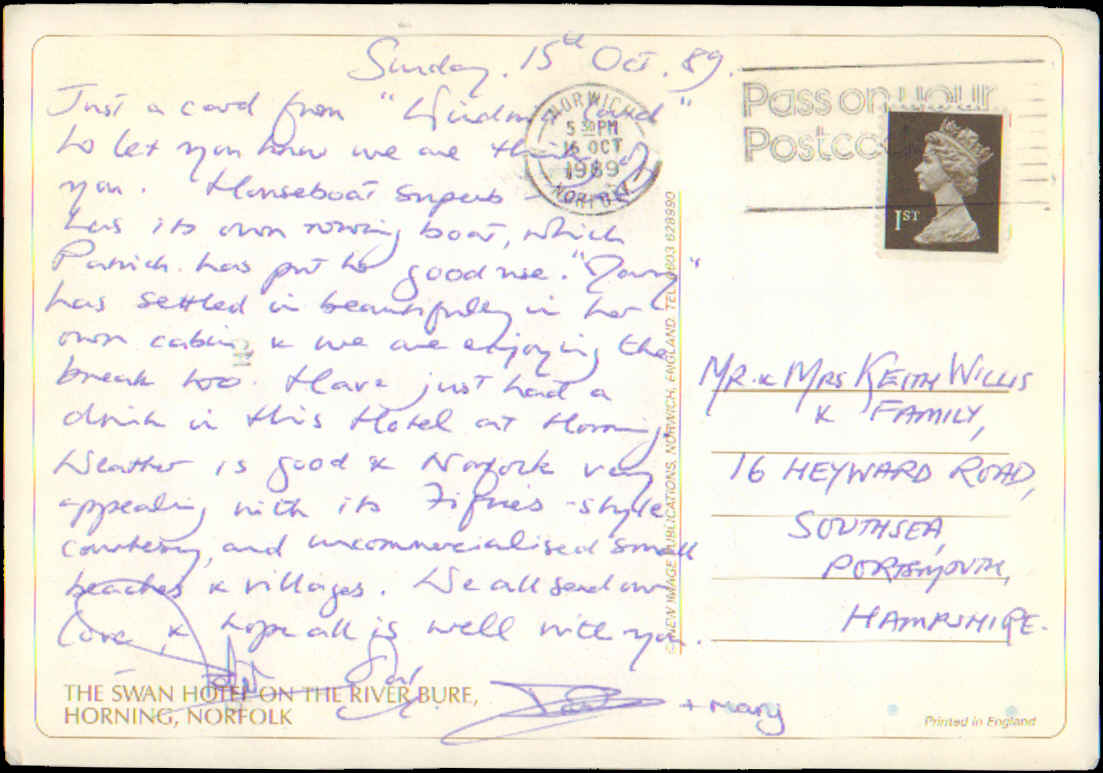 Sunday. 15th Oct. 89.
Just a card from "Windmill Land"
to let you know we are thinking of
you. Houseboat superb -
has its own rowing boat, which
Patrick has put to good use.
has settled in beautifully in her
own cabin, & we are enjoying the
break too. Have just had a
drink in this Hotel at Horning.
Weather is good & Norfolk very
appealing with its Fifties-style
courtesy, and uncommercialised small
beaches & villages. We all send our
love & hope all is well with you.
+ Mary
THE SWAN HOTEL ON THE RIVER BURE,
HORNING, NORFOLK
NORWICH
5 30 PM
16 OCT
1989
NORFOLK
Pass on your
Postcode
1ST
NEW IMAGE PUBLICATIONS, NORWICH, ENGLAND. TEL. 0603 628990
MR. & MRS KEITH WILLIS
& FAMILY,
16 HEYWARD ROAD,
SOUTHSEA,
PORTSMOUTH,
HAMPSHIRE.
Printed in England